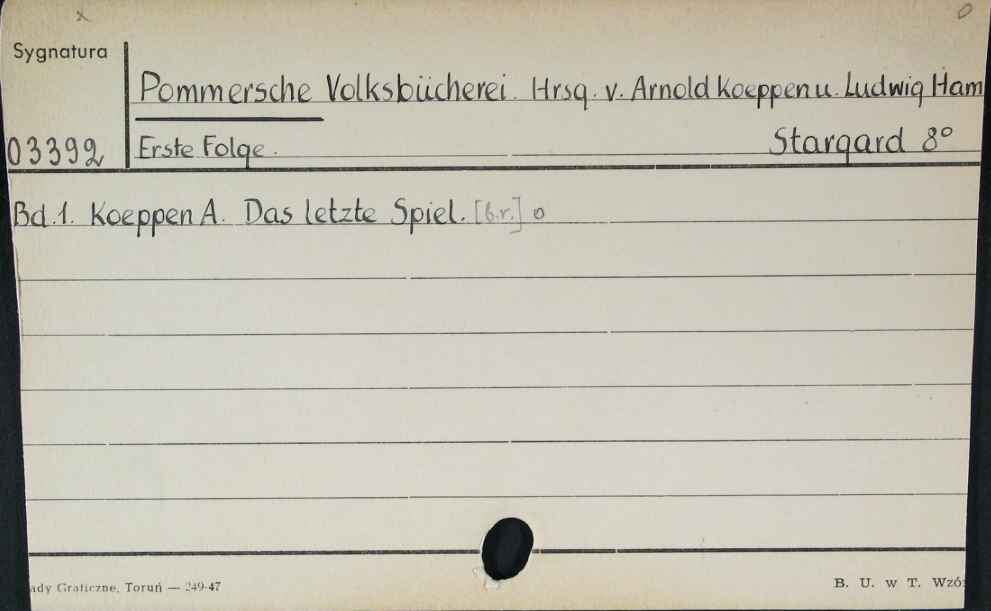 Sygnatura
Pommersche Volksbücherei. Hrsg. v. Arnold Koeppen u. Ludwig Ham
03392
Erste Folge.
Stargard 8°
Bd. 1. Koeppen A. Das letzte Spiel. [b.r.] o
ady Graficzne, Toruń — 249-47
B. U. w T. Wzó